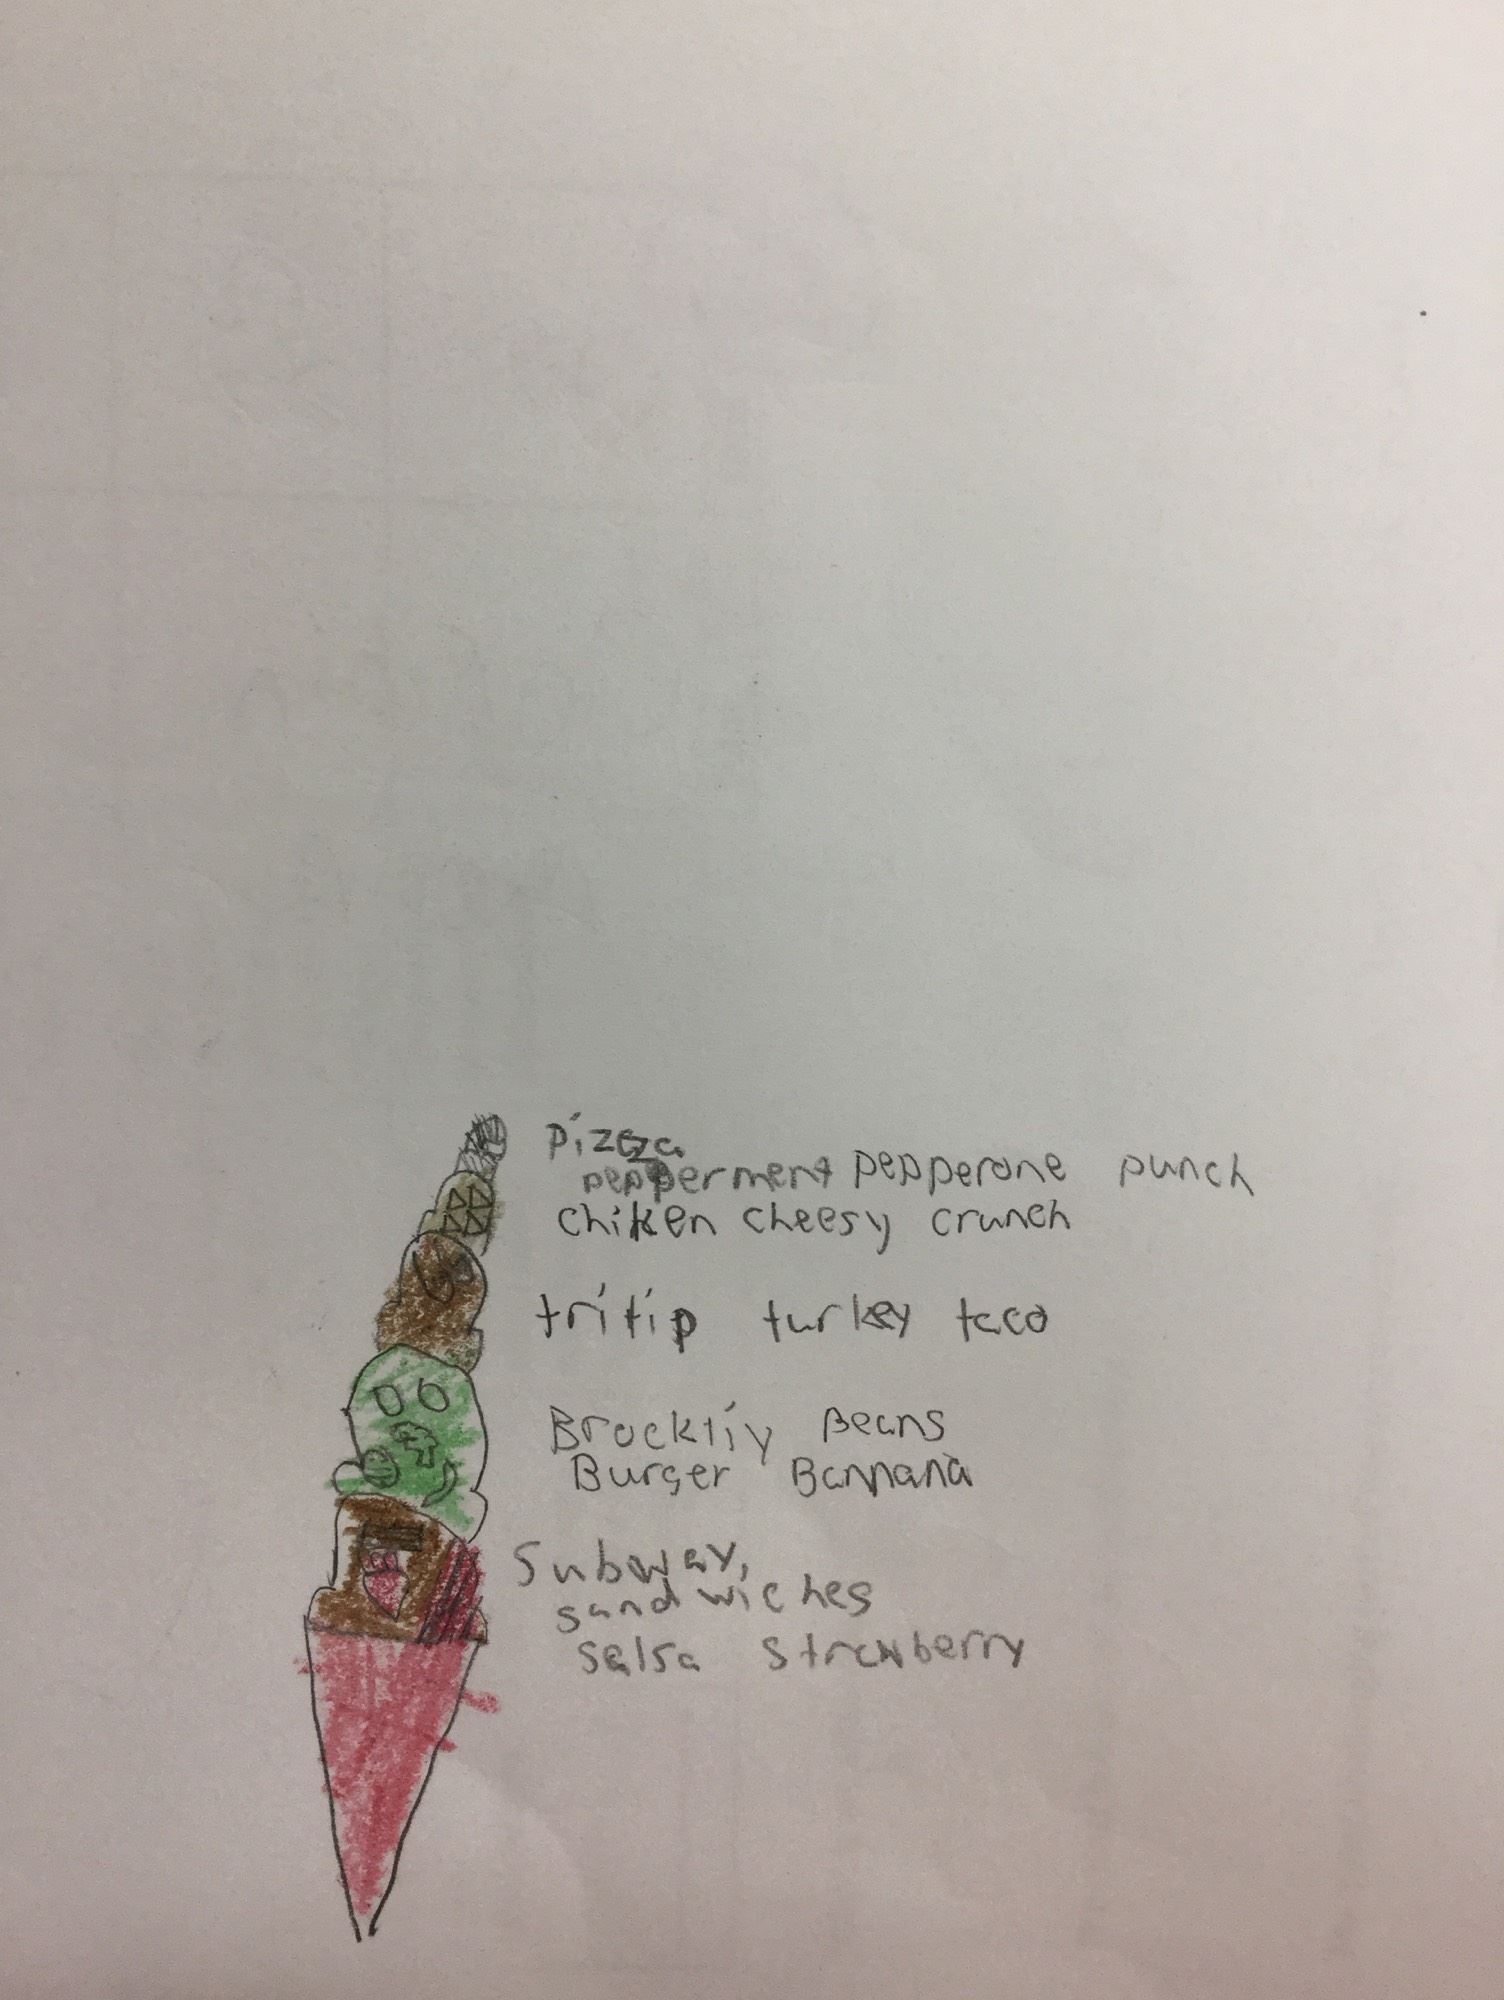 pizza
pepperment pepperone punch
chiken cheesy crunch
tritip turkey taco
Brocktiy Beans
Burger Bannana
Subway,
sandwiches
salsa strawberry